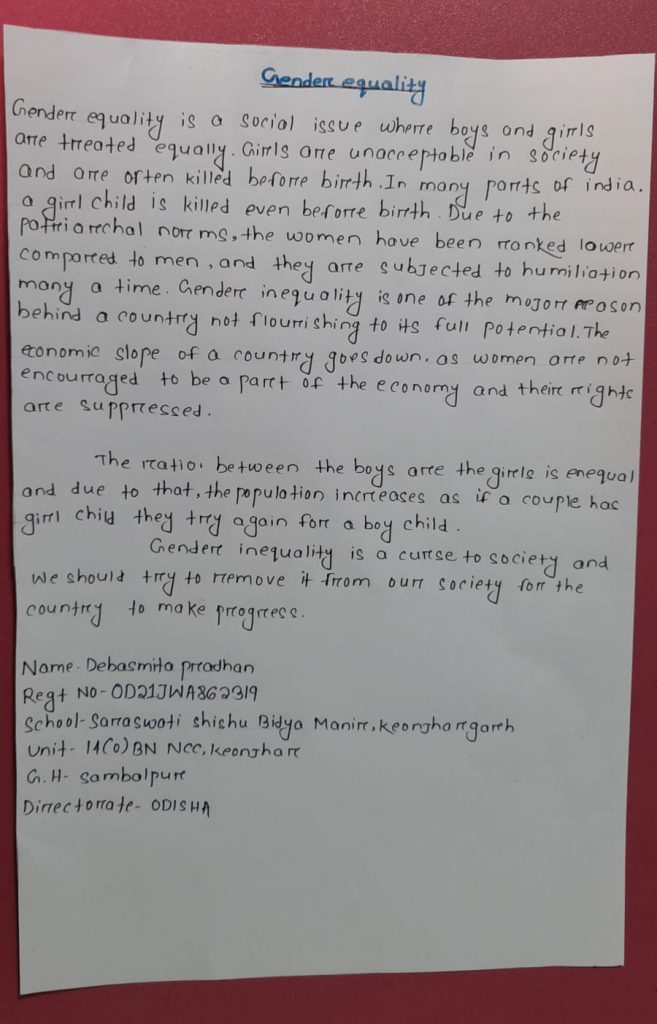 Gender equality
Gender equality is a social issue where boys and girls
are treated equally. Girls are unacceptable in society
and are often killed before birth. In many parts of india.
a girl child is killed even before birth. Due to the
patriarchal norms, the women have been ranked lower
compared to men, and they are subjected to humiliation
many a time. Gender inequality is one of the major reason
behind a country not flourishing to its full potential. The
economic slope of a country goes down. as women are not
encouraged to be a part of the economy and their rights
are suppressed.
The ratio. between the boys are the girls is enequal
and due to that, the population increases as if a couple has
girl child they try again for a boy child.
Gender inequality is a curse to society and
we should try to remove it from our society for the
country to make progress.
Name - Debasmita pradhan
Regt NO - OD21JWA862319
School - Saraswati shishu Bidya Manir, keonjhargarh
Unit - 14(O) BN NCC, keonjhar
G.H - Sambalpur
Directorate - ODISHA